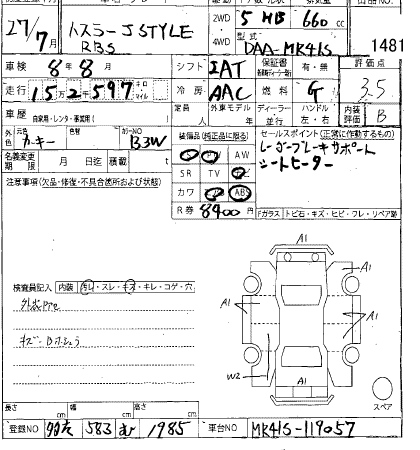 27/7月 ハスラー J STYLE 2WD 5 HB 660 cc
RBS 4WD 型式 DAA-MR41S 1481
車検 8年 8月 シフト IAT 保証書 有・無 評価点
走行 15万2千597 キロ マイル 冷房 AAC 燃料 G 3.5
車歴 自家用・レンタ・事業用( ) 定員 人 外車モデル 年 ディーラー 並行 ハンドル 左・右 内装評価 B
外色 カーキー カラーNO B3W 装備品(純正品に限る) セールスポイント(正常に作動するもの)
名義変更期限 月 日迄 積載 t PS PW AW レーダーブレーキサポート
注意事項(欠品・修復・不具合箇所および状態) SR TV ナビ シートヒーター
カワ ABS
R券 8400円 Fガラス トビ石・キズ・ヒビ・フレ・リペア跡
A1
A1 A1
検査員記入 内装 汚レ・スレ・キズ・キレ・コゲ・穴
A1 A1
W2
A1
スペア
長さ cm 幅 cm 高さ cm
登録NO 583 1985 車台NO MR41S-119057